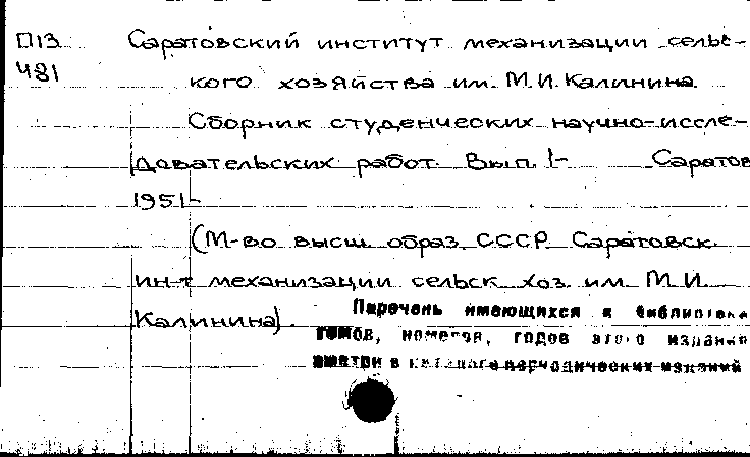 П13 Саратовский институт механизации сельс-
Ч81 кого хозяйства им. М.И. Калинина.
Сборник студенческих научно-иссле-
довательских работ. Вып. 1- Саратов
1951-
(М-во высш. образ. СССР. Саратовск.
ин-т механизации сельск. хоз. им. М.И.
Калинина).
Перечень имеющихся в библиотеке
томов, номеров, годов этого издания
смотри в каталоге периодических изданий